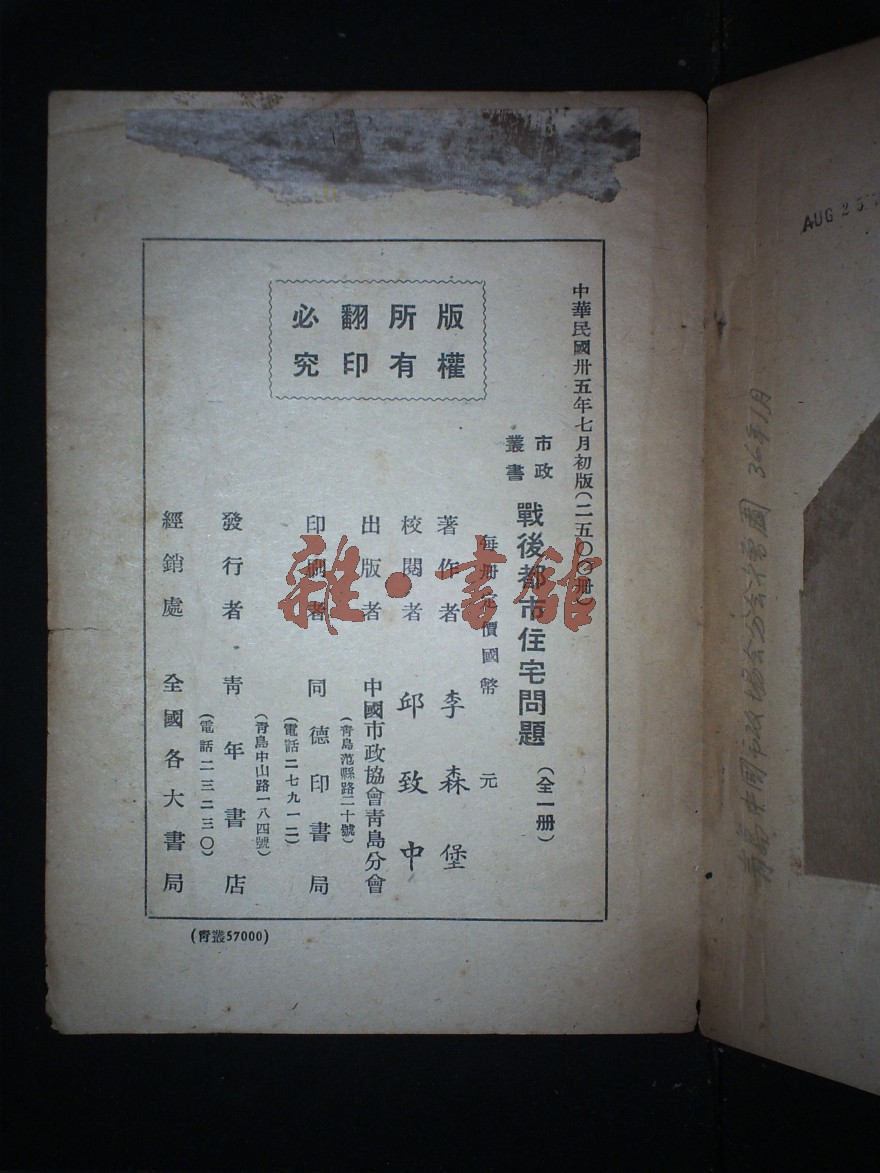 AUG 2 5
中華民國卅五年七月初版(二五〇〇册)
版權
所有
翻印
必究
市政
叢書
戰後都市住宅問題
(全一册)
每册定價國幣 元
著作者 李森堡
校閱者 邱致中
出版者 中國市政協會靑島分會
(靑島范縣路二十號)
印刷者 同德印書局
(電話二七九一二)
(靑島中山路一八四號)
發行者 靑年書店
(電話二三二三〇)
經銷處 全國各大書局
(靑叢57000)
雜·書舘